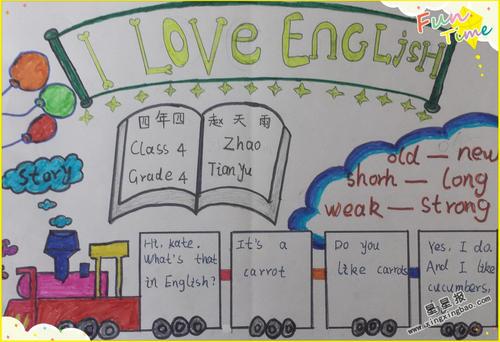 Fun
Time
I LOVE ENGLISH
Story
四年四
Class 4
Grade 4
赵天雨
Zhao
TianYu
old — new
shorh — long
weak — strong
Hi, kate.
What's that
in English?
It's a
carrot
Do you
like carrots
Yes, I do.
And I like
cucumbers.
星星报
www.xingxingbao.com